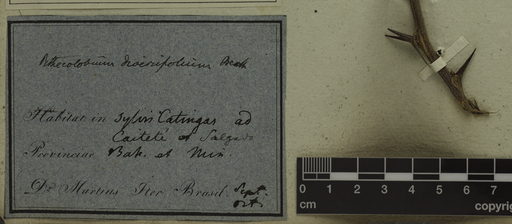 Pithecolobium diversifolium Benth
Habitat in sylvis Catingas ad
Caiteté et Salgado
Provinciae Bah. et Min.
Dr. Martius Iter Brasil. Sept.
Oct.
cm 1 2 3 4 5 6 7
copyrig